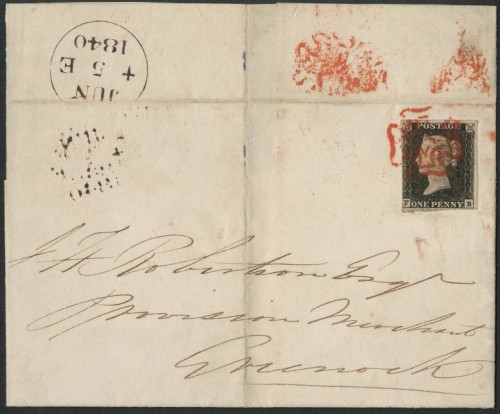 JUN
+ 5 E
1840
POSTAGE
ONE PENNY
J H Robertson Esqr
Provision Merchant
Greenock